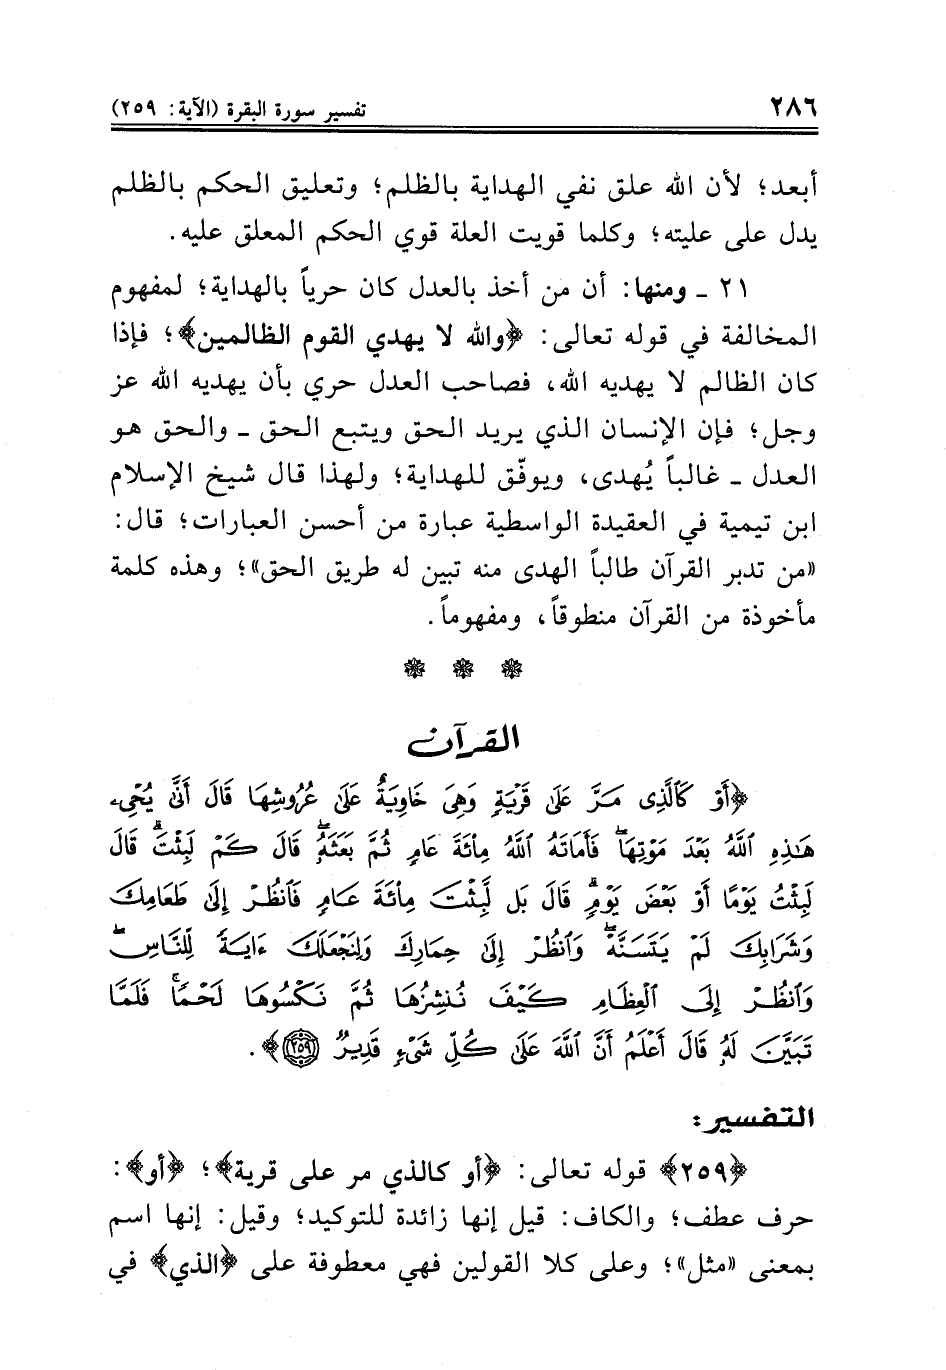 ٢٨٦ تفسير سورة البقرة (الآية: ٢٥٩)
أبعد؛ لأن الله علق نفي الهداية بالظلم؛ وتعليق الحكم بالظلم
يدل على عليته؛ وكلما قويت العلة قوي الحكم المعلق عليه.
٢١ ـ ومنها: أن من أخذ بالعدل كان حرياً بالهداية؛ لمفهوم
المخالفة في قوله تعالى: ﴿والله لا يهدي القوم الظالمين﴾؛ فإذا
كان الظالم لا يهديه الله، فصاحب العدل حري بأن يهديه الله عز
وجل؛ فإن الإنسان الذي يريد الحق ويتبع الحق ـ والحق هو
العدل ـ غالباً يُهدى، ويوفّق للهداية؛ ولهذا قال شيخ الإسلام
ابن تيمية في العقيدة الواسطية عبارة من أحسن العبارات؛ قال:
«من تدبر القرآن طالباً الهدى منه تبين له طريق الحق»؛ وهذه كلمة
مأخوذة من القرآن منطوقاً، ومفهوماً.
القرآن
﴿أَوْ كَٱلَّذِى مَرَّ عَلَىٰ قَرْيَةٍ وَهِىَ خَاوِيَةٌ عَلَىٰ عُرُوشِهَا قَالَ أَنَّىٰ يُحْىِۦ
هَـٰذِهِ ٱللَّهُ بَعْدَ مَوْتِهَا ۖ فَأَمَاتَهُ ٱللَّهُ مِا۟ئَةَ عَامٍ ثُمَّ بَعَثَهُۥ ۖ قَالَ كَمْ لَبِثْتَ ۖ قَالَ
لَبِثْتُ يَوْمًا أَوْ بَعْضَ يَوْمٍ ۖ قَالَ بَل لَّبِثْتَ مِا۟ئَةَ عَامٍ فَٱنظُرْ إِلَىٰ طَعَامِكَ
وَشَرَابِكَ لَمْ يَتَسَنَّهْ ۖ وَٱنظُرْ إِلَىٰ حِمَارِكَ وَلِنَجْعَلَكَ ءَايَةً لِّلنَّاسِ ۖ
وَٱنظُرْ إِلَى ٱلْعِظَامِ كَيْفَ نُنشِزُهَا ثُمَّ نَكْسُوهَا لَحْمًا ۚ فَلَمَّا
تَبَيَّنَ لَهُۥ قَالَ أَعْلَمُ أَنَّ ٱللَّهَ عَلَىٰ كُلِّ شَىْءٍ قَدِيرٌ ٢٥٩﴾.
التفسير:
﴿٢٥٩﴾ قوله تعالى: ﴿أو كالذي مر على قرية﴾؛ ﴿أو﴾:
حرف عطف؛ والكاف: قيل إنها زائدة للتوكيد؛ وقيل: إنها اسم
بمعنى «مثل»؛ وعلى كلا القولين فهي معطوفة على ﴿الذي﴾ في